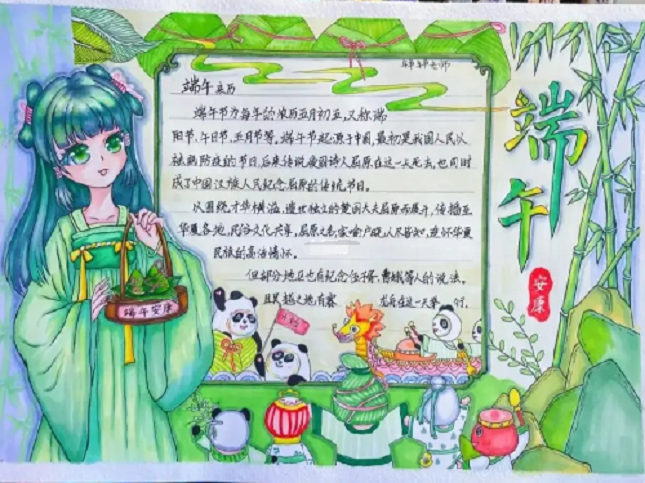 端午
安康
端午来历
端午节为每年的农历五月初五,又称端
阳节,午日节,五月节等。端午节起源于中国,最初是我国人民以
祛病防疫的节日,后来传说爱国诗人屈原在这一天死去,也同时
成了中国汉族人民纪念屈原的传统节日。
从围绕才华横溢、遗世独立的楚国大夫屈原而展开,传播至
华夏各地,民俗文化共享,屈原之名家喻户晓,人尽皆知,追怀华夏
民族的高洁情怀。
但部分地区也有纪念伍子胥、曹娥等人的说法。
且吴越之地有赛 龙舟在这一天举 行,
端午安康